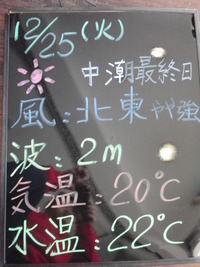 12/25(火)
中潮最終日
風:北東やや強
波:2m
気温:20℃
水温:22℃